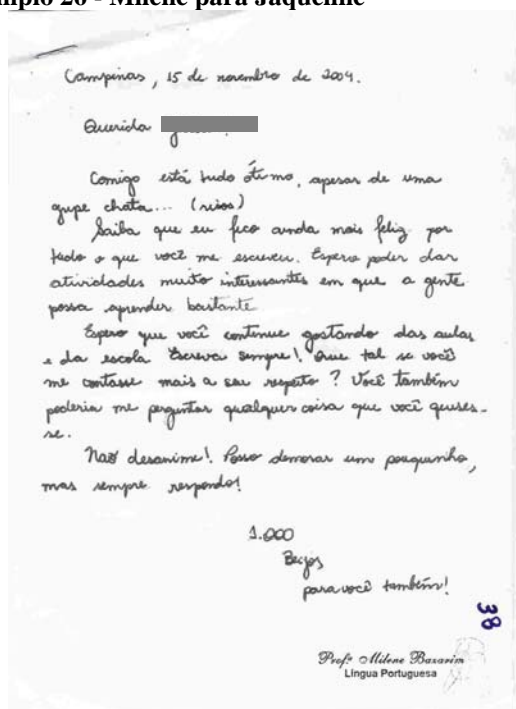 mplo 26 - Milene para Jaqueline
Campinas, 15 de novembro de 2004.
Querida
Comigo está tudo ótimo, apesar de uma
gripe chata... (risos)
Saiba que eu fico ainda mais feliz por
tudo o que você me escreveu. Espero poder dar
atividades muito interessantes em que a gente
possa aprender bastante.
Espero que você continue gostando das aulas
e da escola. Escreva sempre! Que tal se você
me contasse mais a seu respeito? Você também
poderia me perguntar qualquer coisa que você quises-
se.
Não desanime! Posso demorar um pouquinho,
mas sempre respondo!
1.000
Beijos
para você também!
38
Profª Milene Bazarim
Língua Portuguesa